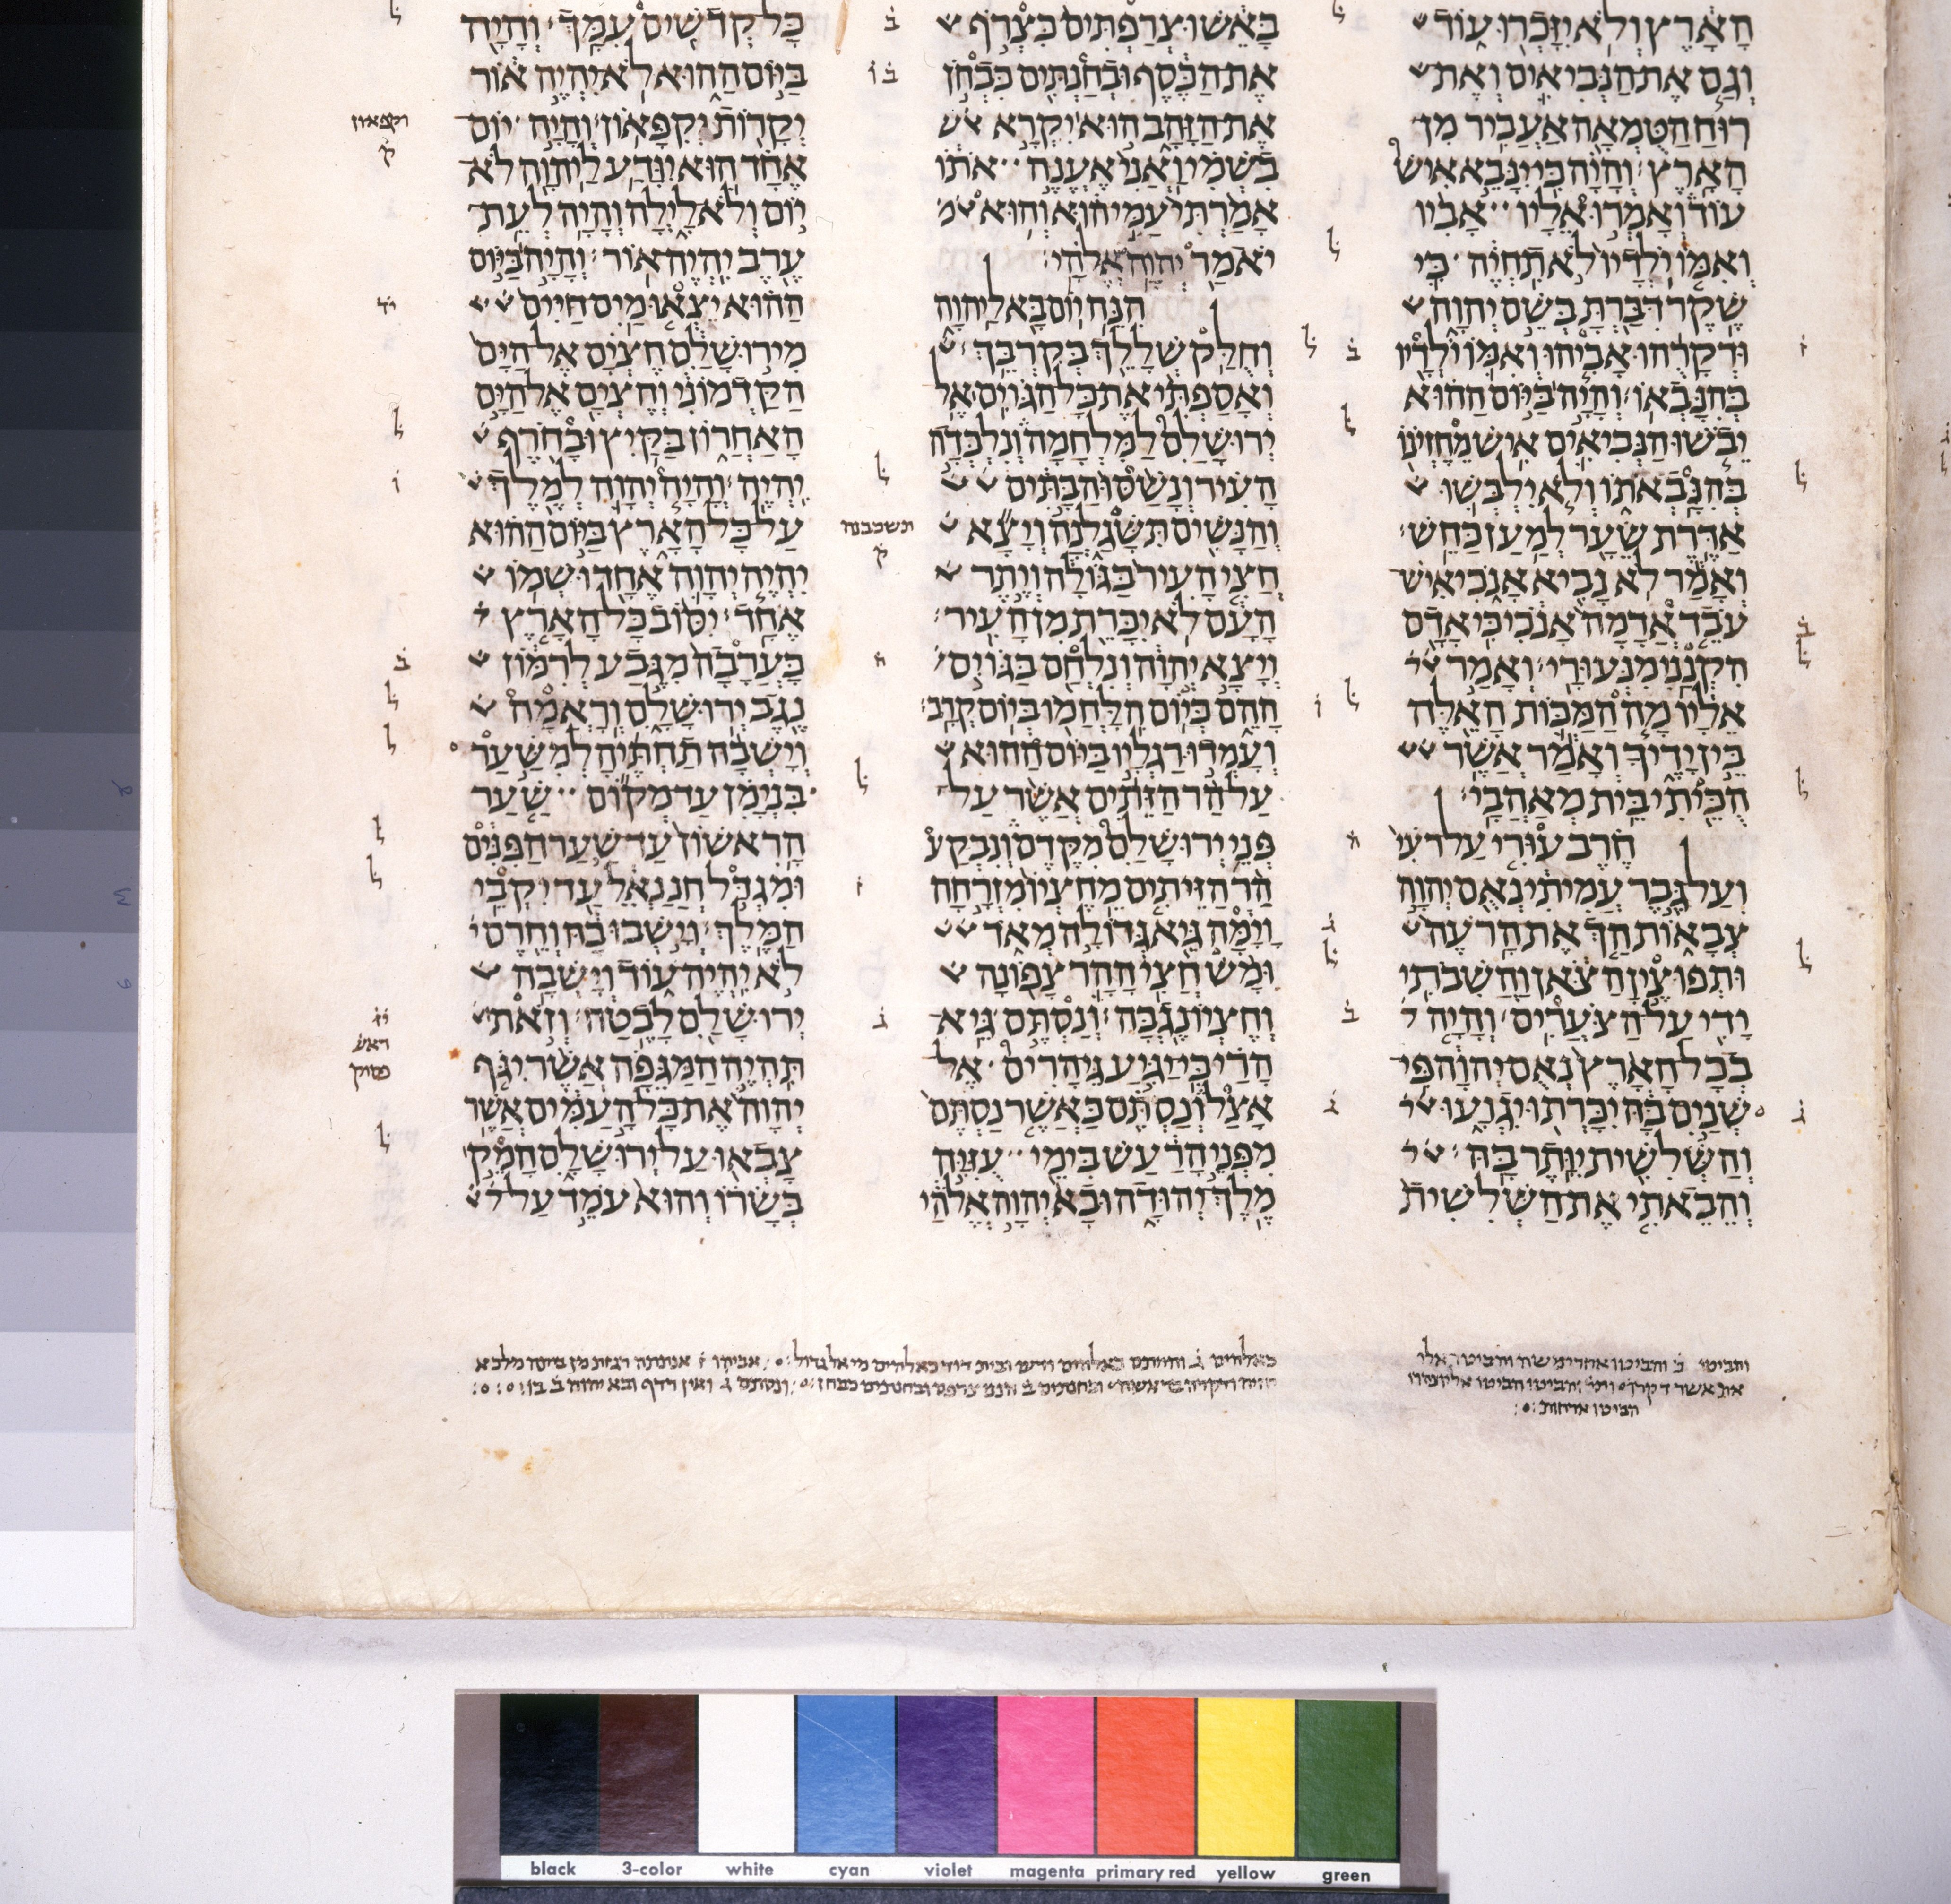 הארץ ולא יזכרו עוד
וגם את הנביאים ואת
רוח הטמאה אעביר מן
הארץ והיה כי ינבא איש
עוד ואמרו אליו אביו
ואמו ילדיו לא תחיה כי
שקר דברת בשם יהוה
ודקרהו אביהו ואמו ילדיו
בהנבאו והיה ביום ההוא
יבשו הנביאים איש מחזינו
בהנבאתו ולא ילבשו
אדרת שער למען כחש
ואמר לא נביא אנכי איש
עבד אדמה אנכי כי אדם
הקנני מנעורי ואמר
אליו מה המכות האלה
בין ידיך ואמר אשר
הכיתי בית מאהבי
חרב עורי על רעי
ועל גבר עמיתי נאם יהוה
צבאות הך את הרעה
ותפוצין הצאן והשבתי
ידי על הצערים והיה
בכל הארץ נאם יהוה פי
שנים בה יכרתו יגועו
והשלשית יותר בה
והבאתי את השלשית
באש וצרפתים כצרף
את הכסף ובחנתים כבחן
את הזהב הוא יקרא
בשמי ואני אענה אתו
אמרתי עמי הוא והוא
יאמר יהוה אלהי
הנה יום בא ליהוה
וחלק שללך בקרבך
ואספתי את כל הגוים אל
ירושלם למלחמה ונלכדה
העיר ונשסו הבתים
והנשים תשגלנה ויצא
תשכבנה
ק
חצי העיר בגולה ויתר
העם לא יכרת מן העיר
ויצא יהוה ונלחם בגוים
ההם כיום הלחמו ביום קרב
ועמדו רגליו ביום ההוא
על הר הזתים אשר על
פני ירושלם מקדם ונבקע
הר הזיתים מחציו מזרחה
וימה גיא גדולה מאד
ומש חצי ההר צפונה
וחציו נגבה ונסתם גיא
הרי כי יגיע גי הרים אל
אצל ונסתם כאשר נסתם
מפני הרעש בימי עזיה
מלך יהודה ובא יהוה אלהי
כל קדשים עמך והיה
ביום ההוא לא יהיה אור
יקרות יקפאון והיה יום
וקפאון
ק
אחד הוא יודע ליהוה לא
יום ולא לילה והיה לעת
ערב יהיה אור והיה ביום
ההוא יצאו מים חיים
מירושלם חצים אל הים
הקדמוני וחצים אל הים
האחרון בקיץ ובחרף
יהיה והיה יהוה למלך
על כל הארץ ביום ההוא
יהיה יהוה אחד ושמו
אחד יסוב כל הארץ
כערבה מגבע לרמון
נגב ירושלם וראמה
וישבה תחתיה למשער
בנימן עד מקום שער
הראשון עד שער הפנים
ומגדל חננאל עד יקבי
המלך וישבו בה וחרם
לא יהיה עוד וישבה
ירושלם לבטח וזאת
ראש
פסוק
תהיה המגפה אשר יגף
יהוה את כל העמים אשר
צבאו על ירושלם המק
בשרו והוא עמד על
black 3-color white cyan violet magenta primary red yellow green